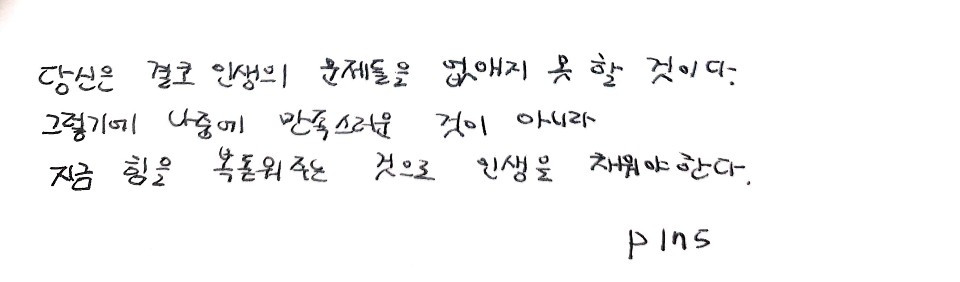 당신은 결코 인생의 문제들을 없애지 못 할 것이다.
그렇기에 나중에 만족스러운 것이 아니라
지금 힘을 복돋워주는 것으로 인생을 채워야한다.
p105